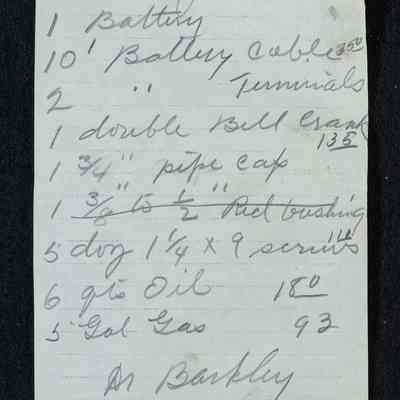 1 Battery
10' Battery Cable 350
2 " Terminals
1 double Bell Crank
135
1 3/4" pipe cap
1 3/8" to 1/2" Red bushing
5 doz 1 1/4 x 9 screws
6 qts Oil 180
5 Gal Gas 93
Barkley